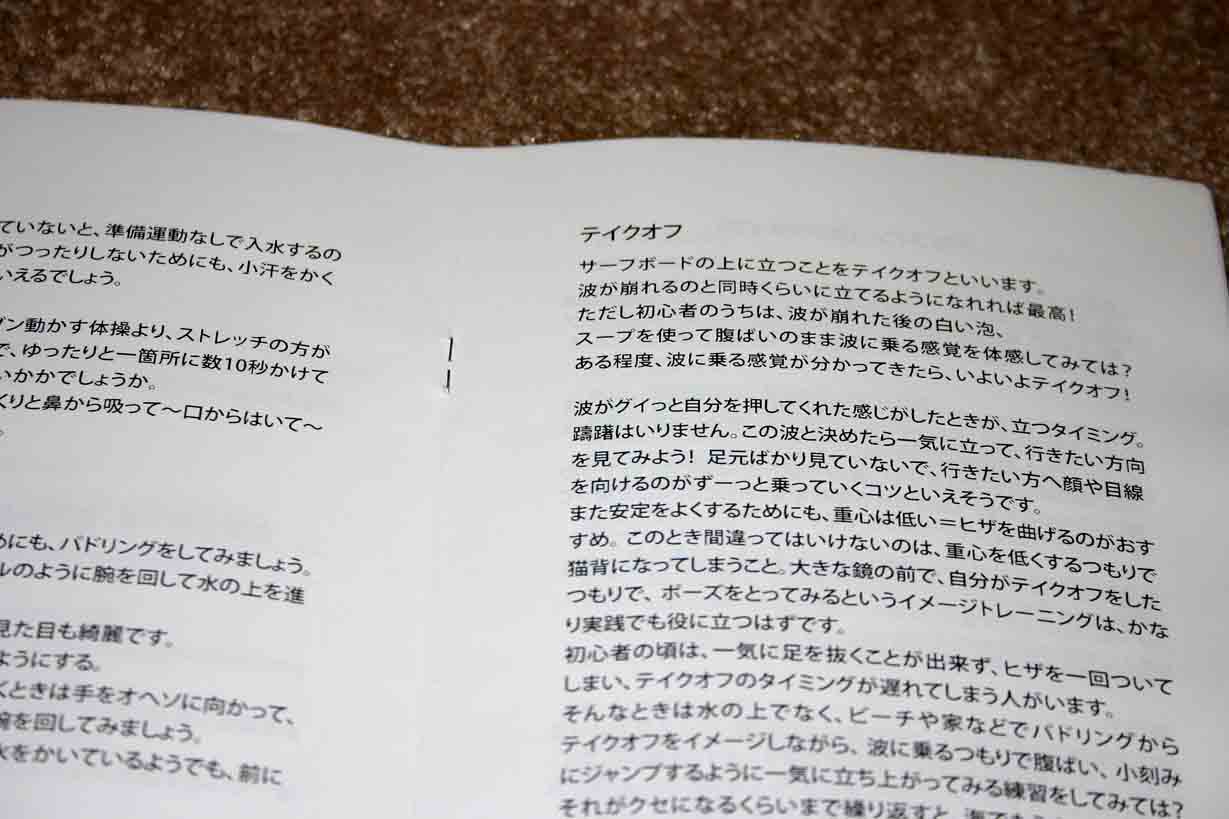 ていないと、準備運動なしで入水するの
がつったりしないためにも、小汗をかく
いえるでしょう。
ブン動かす体操より、ストレッチの方が
で、ゆったりと一箇所に数10秒かけて
いかかでしょうか。
くりと鼻から吸って〜口からはいて〜
。
めにも、パドリングをしてみましょう。
ルのように腕を回して水の上を進
見た目も綺麗です。
ようにする。
くときは手をオヘソに向かって、
腕を回してみましょう。
水をかいているようでも、前に
テイクオフ
サーフボードの上に立つことをテイクオフといいます。
波が崩れるのと同時くらいに立てるようになれれば最高!
ただし初心者のうちは、波が崩れた後の白い泡、
スープを使って腹ばいのまま波に乗る感覚を体感してみては?
ある程度、波に乗る感覚が分かってきたら、いよいよテイクオフ!
波がグイっと自分を押してくれた感じがしたときが、立つタイミング。
躊躇はいりません。この波と決めたら一気に立って、行きたい方向
を見てみよう! 足元ばかり見ていないで、行きたい方へ顔や目線
を向けるのがずーっと乗っていくコツといえそうです。
また安定をよくするためにも、重心は低い=ヒザを曲げるのがおす
すめ。このとき間違ってはいけないのは、重心を低くするつもりで
猫背になってしまうこと。大きな鏡の前で、自分がテイクオフをした
つもりで、ポーズをとってみるというイメージトレーニングは、かな
り実践でも役に立つはずです。
初心者の頃は、一気に足を抜くことが出来ず、ヒザを一回ついて
しまい、テイクオフのタイミングが遅れてしまう人がいます。
そんなときは水の上でなく、ビーチや家などでパドリングから
テイクオフをイメージしながら、波に乗るつもりで腹ばい、小刻み
にジャンプするように一気に立ち上がってみる練習をしてみては?
それがクセになるくらいまで繰り返すと、海でも